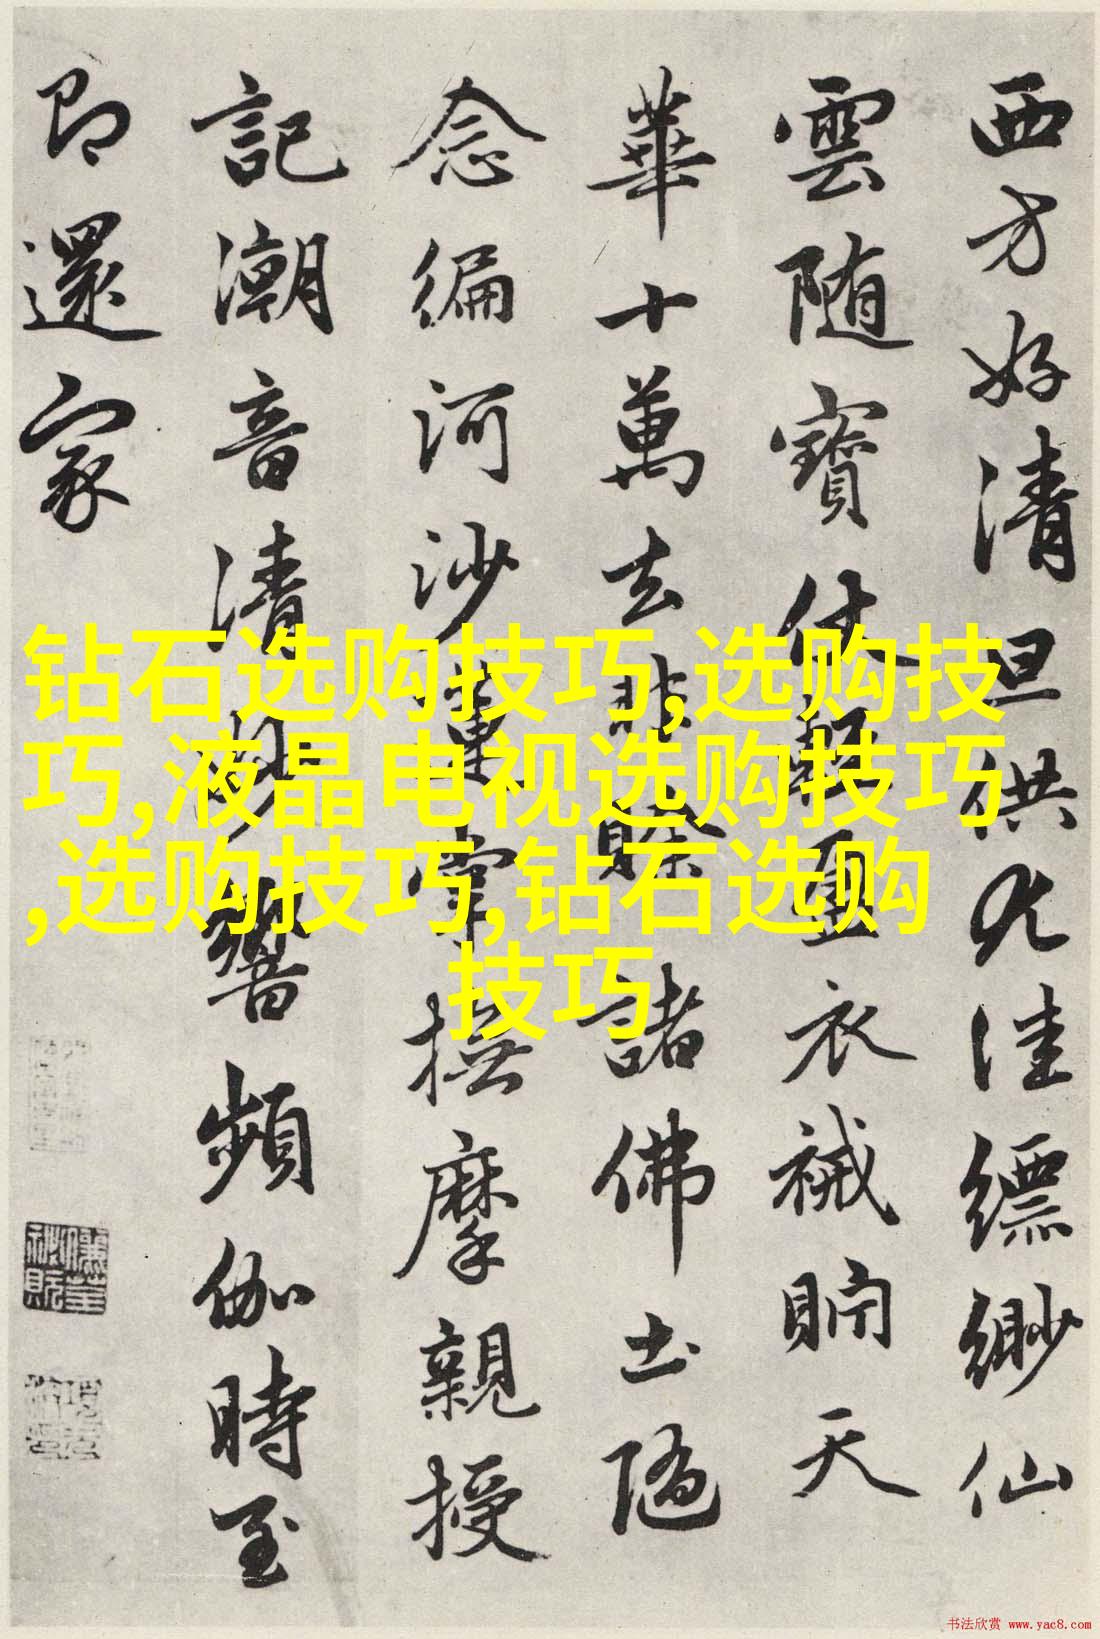 西方好清旦供九洼縹緲仙
雲随寶仗輕盈衣裓貯天
華十萬去非賒諸佛土隨
念編河沙蓮掌撫摩親授
記潮音清妙響頻伽時至
即還家
钻石选购技巧,选购技
巧,液晶电视选购技巧
,选购技巧,钻石选购
技巧
书法欣赏 www.yac8.com